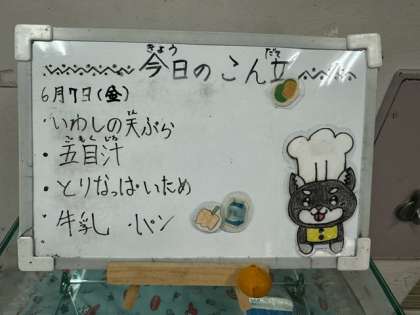 きょう だて
今日のこん立
6月7日(金)
・いわしの天ぷら
ごもくじる
・五目汁
・とりなっぱいため
・牛乳 ・パン